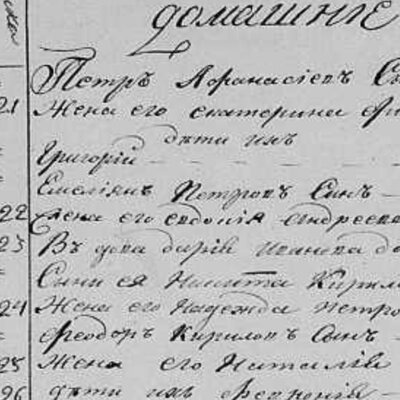 домашние
Петръ Афанасіевъ Сы
21 Жена его екатерина
дѣти ихъ
Григорій
Емеліянъ Петровъ Сынъ
22 Жена его евдокія андреева
23 Вдова дарія иванова
Сынъ ея Никита Кирил
24 Жена его Надежда петро
Феодоръ Кириловъ Сынъ
25 Жена его Наталія
26 дѣти ихъ